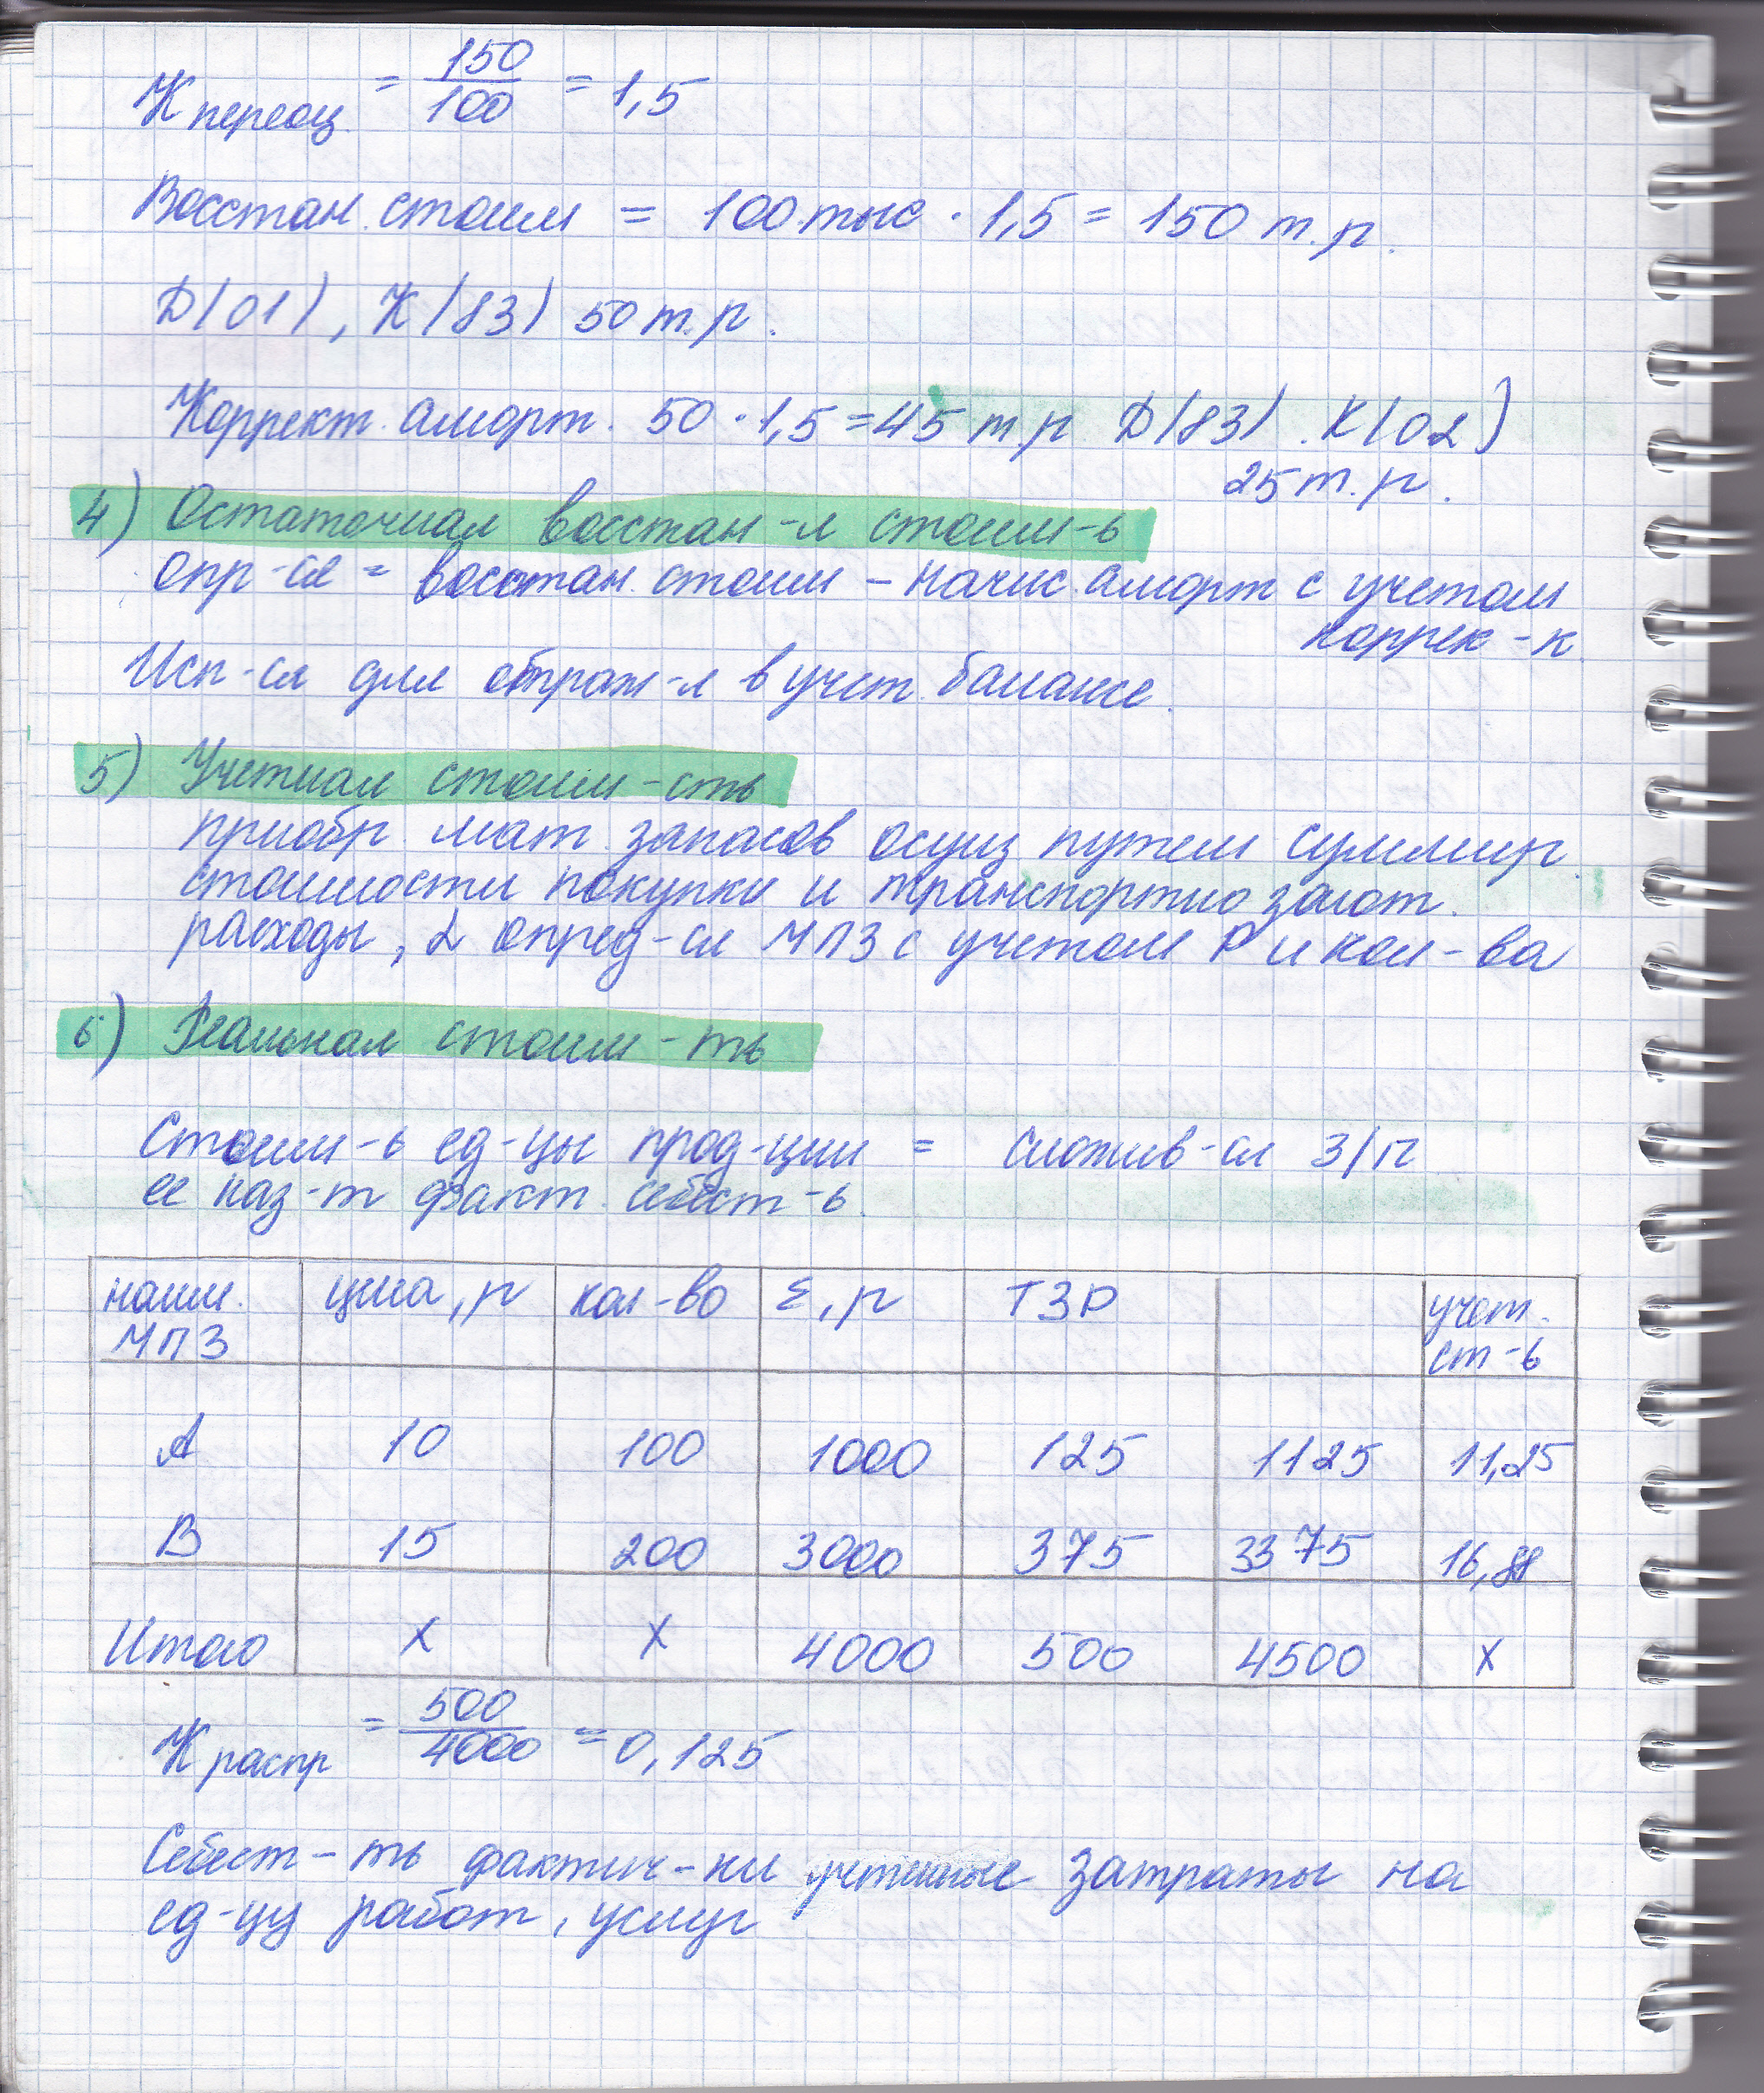 К переоц. = 150/100 = 1,5
Восстан. стоим = 100 тыс · 1,5 = 150 т.р.
Д(01), К(83) 50 т.р.
Коррект. аморт. 50 · 1,5 = 45 т.р Д(83). К(02)
25 т.р.
4) Остаточная восстан-я стоим-ь
опр-ся = восстан. стоим – начис. аморт с учетом
коррек-к.
Исп-ся для отраж-я в учет. балансе.
5) Учетная стоим-сть
приобр. мат. запасов осущ путем суммир.
стоимости покупки и транспортно загот.
расходы, 2 опред-ся МПЗ с учетом Р и кол-ва
6) Реальная стоим-ть
Стоим-ь ед-цы прод-ции = сложив-ся З/П
ее наз-т факт. себест-ь.
наим. МПЗ цена, р кол-во Σ, р ТЗР учет. ст-ь
А 10 100 1000 125 1125 11,25
В 15 200 3000 375 3375 16,88
Итого х х 4000 500 4500 х
К распр = 500/4000 = 0,125
Себест-ть фактич-ки учтенные затраты на
ед-цу работ, услуг